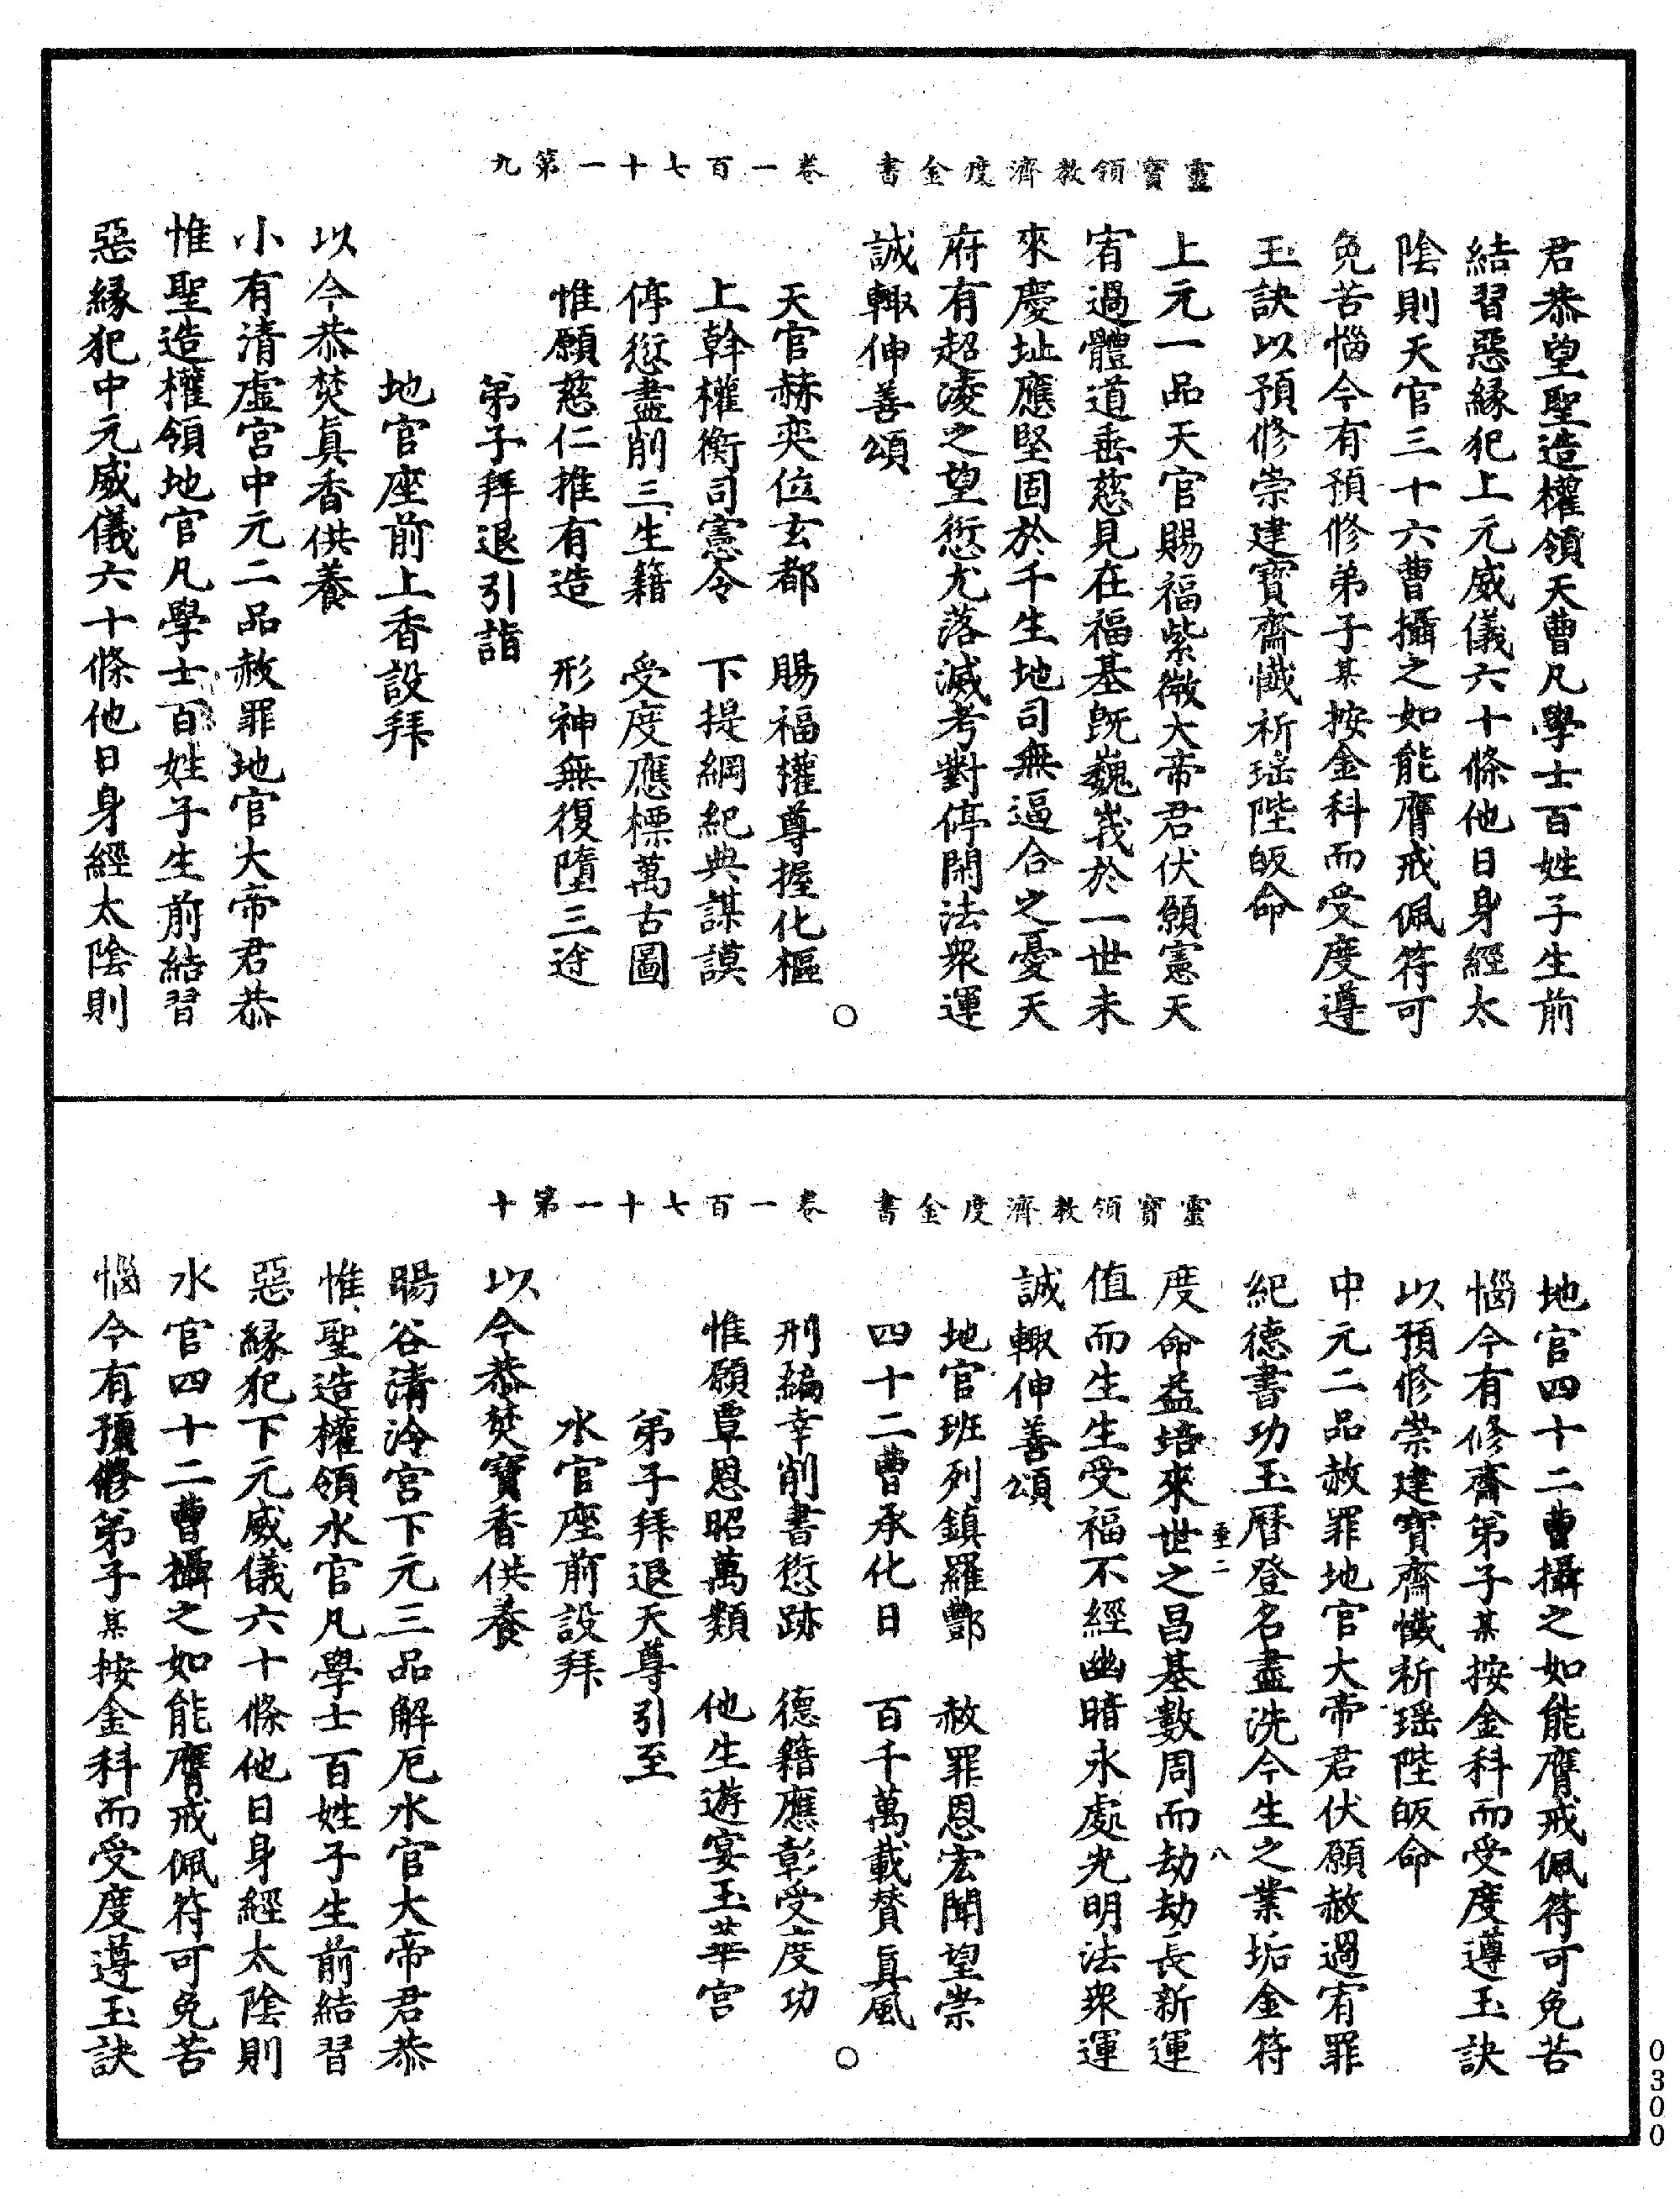 靈寶領教濟度金書　卷一百七十一第九
君恭望聖造權領天曹凡學士百姓子生前
結習惡緣犯上元威儀六十條他日身經太
陰則天官三十六曹攝之如能膺戒佩符可
免苦惱今有預修弟子某按金科而受度遵
玉訣以預修崇建寶齋懺祈瑤陛皈命
上元一品天官賜福紫微大帝君伏願憲天
宥過體道垂慈見在福基既巍峩於一世未
來慶址應堅固於千生地司無逼合之憂天
府有超凌之望愆尤落滅考對停閑法衆運
誠輙伸善頌
天官赫奕位玄都　賜福權尊握化樞
上斡權衡司憲令　下提綱紀典謀謨
停愆盡削三生籍　受度應標萬古圖
惟願慈仁推有造　形神無復墮三途
弟子拜退引詣
地官座前上香設拜
以今恭焚眞香供養
小有清虛宮中元二品赦罪地官大帝君恭
惟聖造權領地官凡學士百姓子生前結習
惡緣犯中元威儀六十條他日身經太陰則
靈寶領教濟度金書　卷一百七十一第十
地官四十二曹攝之如能膺戒佩符可免苦
惱今有修齋弟子某按金科而受度遵玉訣
以預修崇建寶齋懺祈瑤陛皈命
中元二品赦罪地官大帝君伏願赦過宥罪
紀德書功玉曆登名盡洗今生之業垢金符
度命益培來世之昌基數周而劫劫長新運
值而生生受福不經幽暗永處光明法衆運
誠輙伸善頌
地官班列鎮羅酆　赦罪恩宏聞望崇
四十二曹承化日　百千萬載贊眞風
刑編幸削書愆跡　德籍應彰受度功
惟願覃恩昭萬類　他生遊宴玉華宮
弟子拜退天尊引至
水官座前設拜
以今恭焚寶香供養
暘谷清泠宮下元三品解厄水官大帝君恭
惟聖造權領水官凡學士百姓子生前結習
惡緣犯下元威儀六十條他日身經太陰則
水官四十二曹攝之如能膺戒佩符可免苦
惱今有預修弟子某按金科而受度遵玉訣
0300